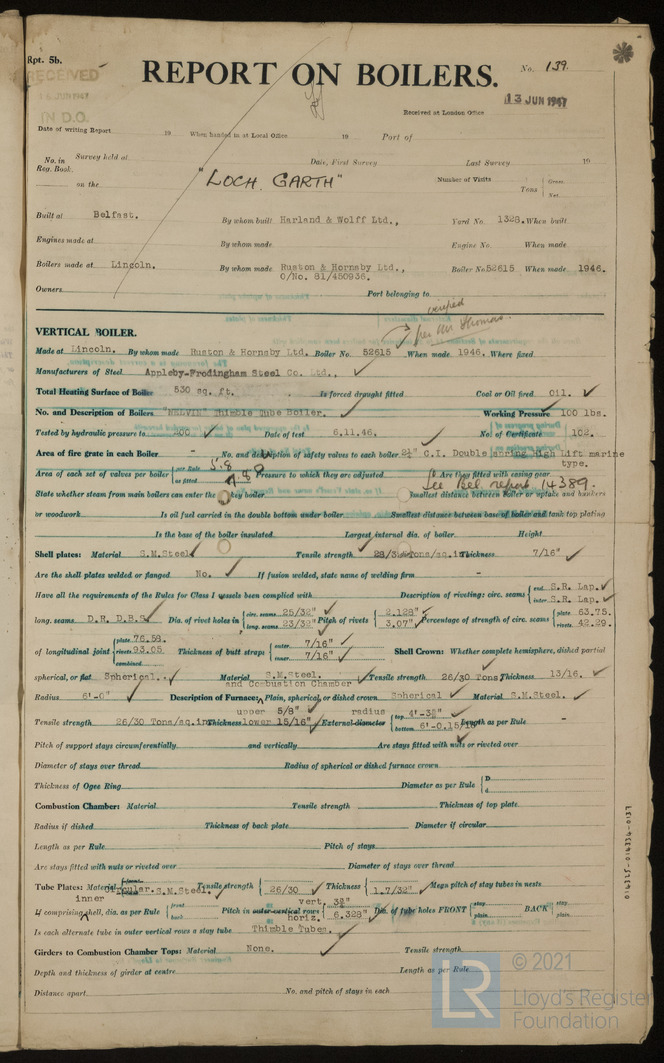 Rpt. 5b.
RECEIVED
JUN 1947
IN D.O.
REPORT ON BOILERS.
No. 139.
13 JUN 1947
Received at London Office
Date of writing Report 19 When handed in at Local Office 19 Port of
No. in Reg. Book. Survey held at Date, First Survey Last Survey 19
on the "LOCH GARTH" Number of Visits Tons Gross Net
Built at Belfast. By whom built Harland & Wolff Ltd., Yard No. 1328. When built
Engines made at By whom made Engine No. When made
Boilers made at Lincoln. By whom made Ruston & Hornsby Ltd., Boiler No. 52615 When made 1946.
O/No. 81/450936.
Owners Port belonging to
verified
per Mr Thomas.
VERTICAL BOILER.
Made at Lincoln. By whom made Ruston & Hornsby Ltd. Boiler No. 52615 When made 1946. Where fixed
Manufacturers of Steel Appleby-Frodingham Steel Co. Ltd.,
Total Heating Surface of Boiler 530 sq. ft. Is forced draught fitted Coal or Oil fired Oil.
No. and Description of Boilers "KELVIN" Thimble Tube Boiler. Working Pressure 100 lbs.
Tested by hydraulic pressure to 200 Date of test 6.11.46. No. of Certificate 102.
Area of fire grate in each Boiler - No. and description of safety valves to each boiler 2½" C.I. Double Spring High Lift marine type.
Area of each set of valves per boiler per Rule 5.8 as fitted 9.80 Pressure to which they are adjusted Are they fitted with easing gear
See Bel report 14389.
State whether steam from main boilers can enter the donkey boiler Smallest distance between boiler or uptake and bunkers
or woodwork Is oil fuel carried in the double bottom under boiler Smallest distance between base of boiler and tank top plating
Is the base of the boiler insulated Largest internal dia. of boiler Height
Shell plates: Material S.M.Steel Tensile strength 28/32 Tons/sq.in Thickness 7/16"
Are the shell plates welded or flanged No. If fusion welded, state name of welding firm -
Have all the requirements of the Rules for Class I vessels been complied with Description of riveting: circ. seams end S.R. Lap. inter. S.R. Lap.
long. seams D.R. D.B.S. Dia. of rivet holes in circ. seams 25/32" long. seams 23/32" Pitch of rivets 2.128" 3.07" Percentage of strength of circ. seams plate 63.75. rivets 42.29.
of longitudinal joint plate 76.58. rivets 93.05 combined Thickness of butt straps outer 7/16" inner 7/16" Shell Crown: Whether complete hemisphere, dished partial
spherical, or flat Spherical. Material S.M.Steel. Tensile strength 26/30 Tons Thickness 13/16.
and Combustion Chamber
Radius 6'-0" Description of Furnace: Plain, spherical, or dished crown Spherical Material S.M.Steel.
upper 5/8" radius
Tensile strength 26/30 Tons/sq.in Thickness lower 15/16" External diameter top 4'-3⅜" bottom 6'-0.15/16" Length as per Rule -
Pitch of support stays circumferentially and vertically Are stays fitted with nuts or riveted over
Diameter of stays over thread Radius of spherical or dished furnace crown
Thickness of Ogee Ring Diameter as per Rule D d
Combustion Chamber: Material Tensile strength Thickness of top plate
Radius if dished Thickness of back plate Diameter if circular
Length as per Rule Pitch of stays
Are stays fitted with nuts or riveted over Diameter of stays over thread
Tube Plates: Material front back S.M.Steel. Tensile strength 26/30 Thickness 1.7/32" Mean pitch of stay tubes in nests
inner vert. 3⅜"
If comprising shell, dia. as per Rule front back Pitch in outer vertical rows horiz. 6.328" Dia. of tube holes FRONT stay plain BACK stay plain
Is each alternate tube in outer vertical rows a stay tube Thimble Tubes.
Girders to Combustion Chamber Tops: Material None. Tensile strength
Depth and thickness of girder at centre Length as per Rule
Distance apart No. and pitch of stays in each
LR © 2021
Lloyd's Register
Foundation